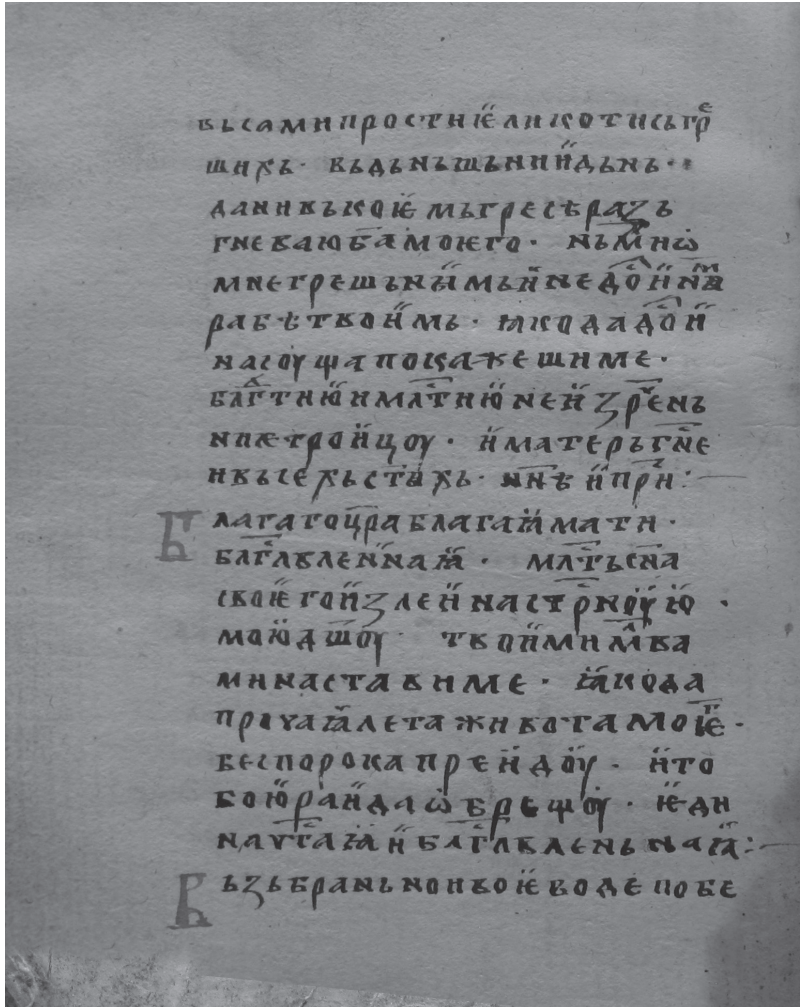 вьсамипростиѥликотисьгрⷷ
шихь · вьдьньшьнииⷩ҇дьнь · ·
данивькоѥмьгресѣразъ
гневаюба҃моѥго · нъм҃нѡ
мнегрешьныимьинедои҃н҃ⷨ
рабѣтвоимь · ꙗкодадо҃и
насоущапокажешиме ·
блⷢ҇тиюимл҃тиюнеиꙁр҃ень
нипѣтроицоу · иматерьгн҃е
ивьсехьст҃ыхь · нн҃ѣипр҃и :
Благагоцр҃аблагаꙗмати ·
блⷢ҇авленнаꙗ · мл҃тьсн҃а
своѥгоиꙁлеинастр҃ноую ·
моюдш҃оу · твоимимл҃ва
минаставиме · ꙗкода
проуаꙗлетаживотамоѥⷢ ·
беспорокапреидоу · ито
боюраидаѡбрещоу · ѥди
наут҃аꙗиблⷢ҇авленьнаꙗ :
Вьꙁьбраньноивоѥводепобе